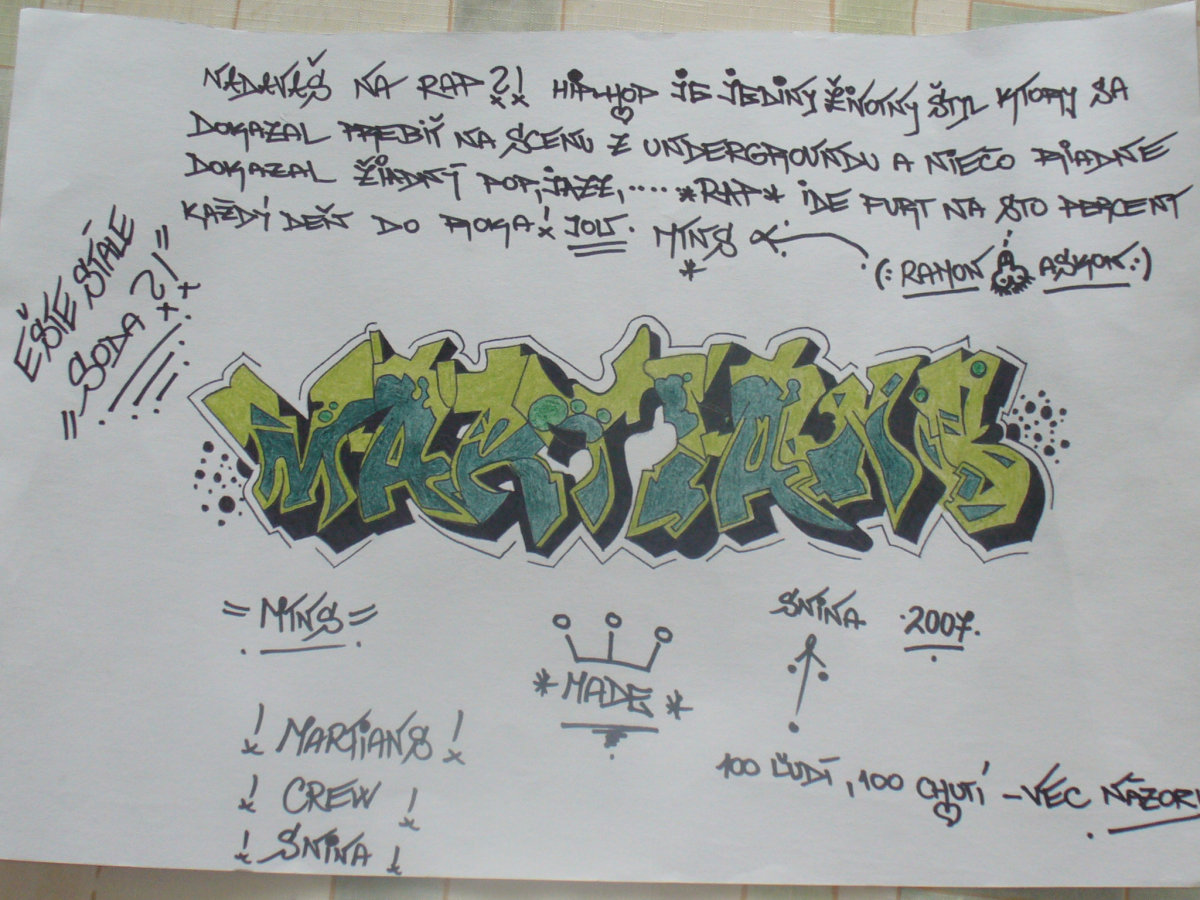 NADÁVAŠ NA RAP?! HIPHOP JE JEDINÝ ŽIVOTNÝ ŠTÝL KTORÝ SA
DOKAZAL PREBIŤ NA SCENU Z UNDERGROUNDU A NIEČO RIADNE
DOKAZAL ŽIADNÝ POP, JAZZ,.... *RAP* IDE FURT NA STO PERCENT
KAŽDÝ DEŇ DO ROKA! JOU. MTNS
(: RAMON ASKON :)
EŠTE STÁLE
"SODA?!"
MARTIANS
= MTNS =
SNINA 2007.
*MADE*
! MARTIANS !
! CREW !
! SNINA !
100 ĽUDÍ, 100 CHUTÍ - VEC NÁZORU